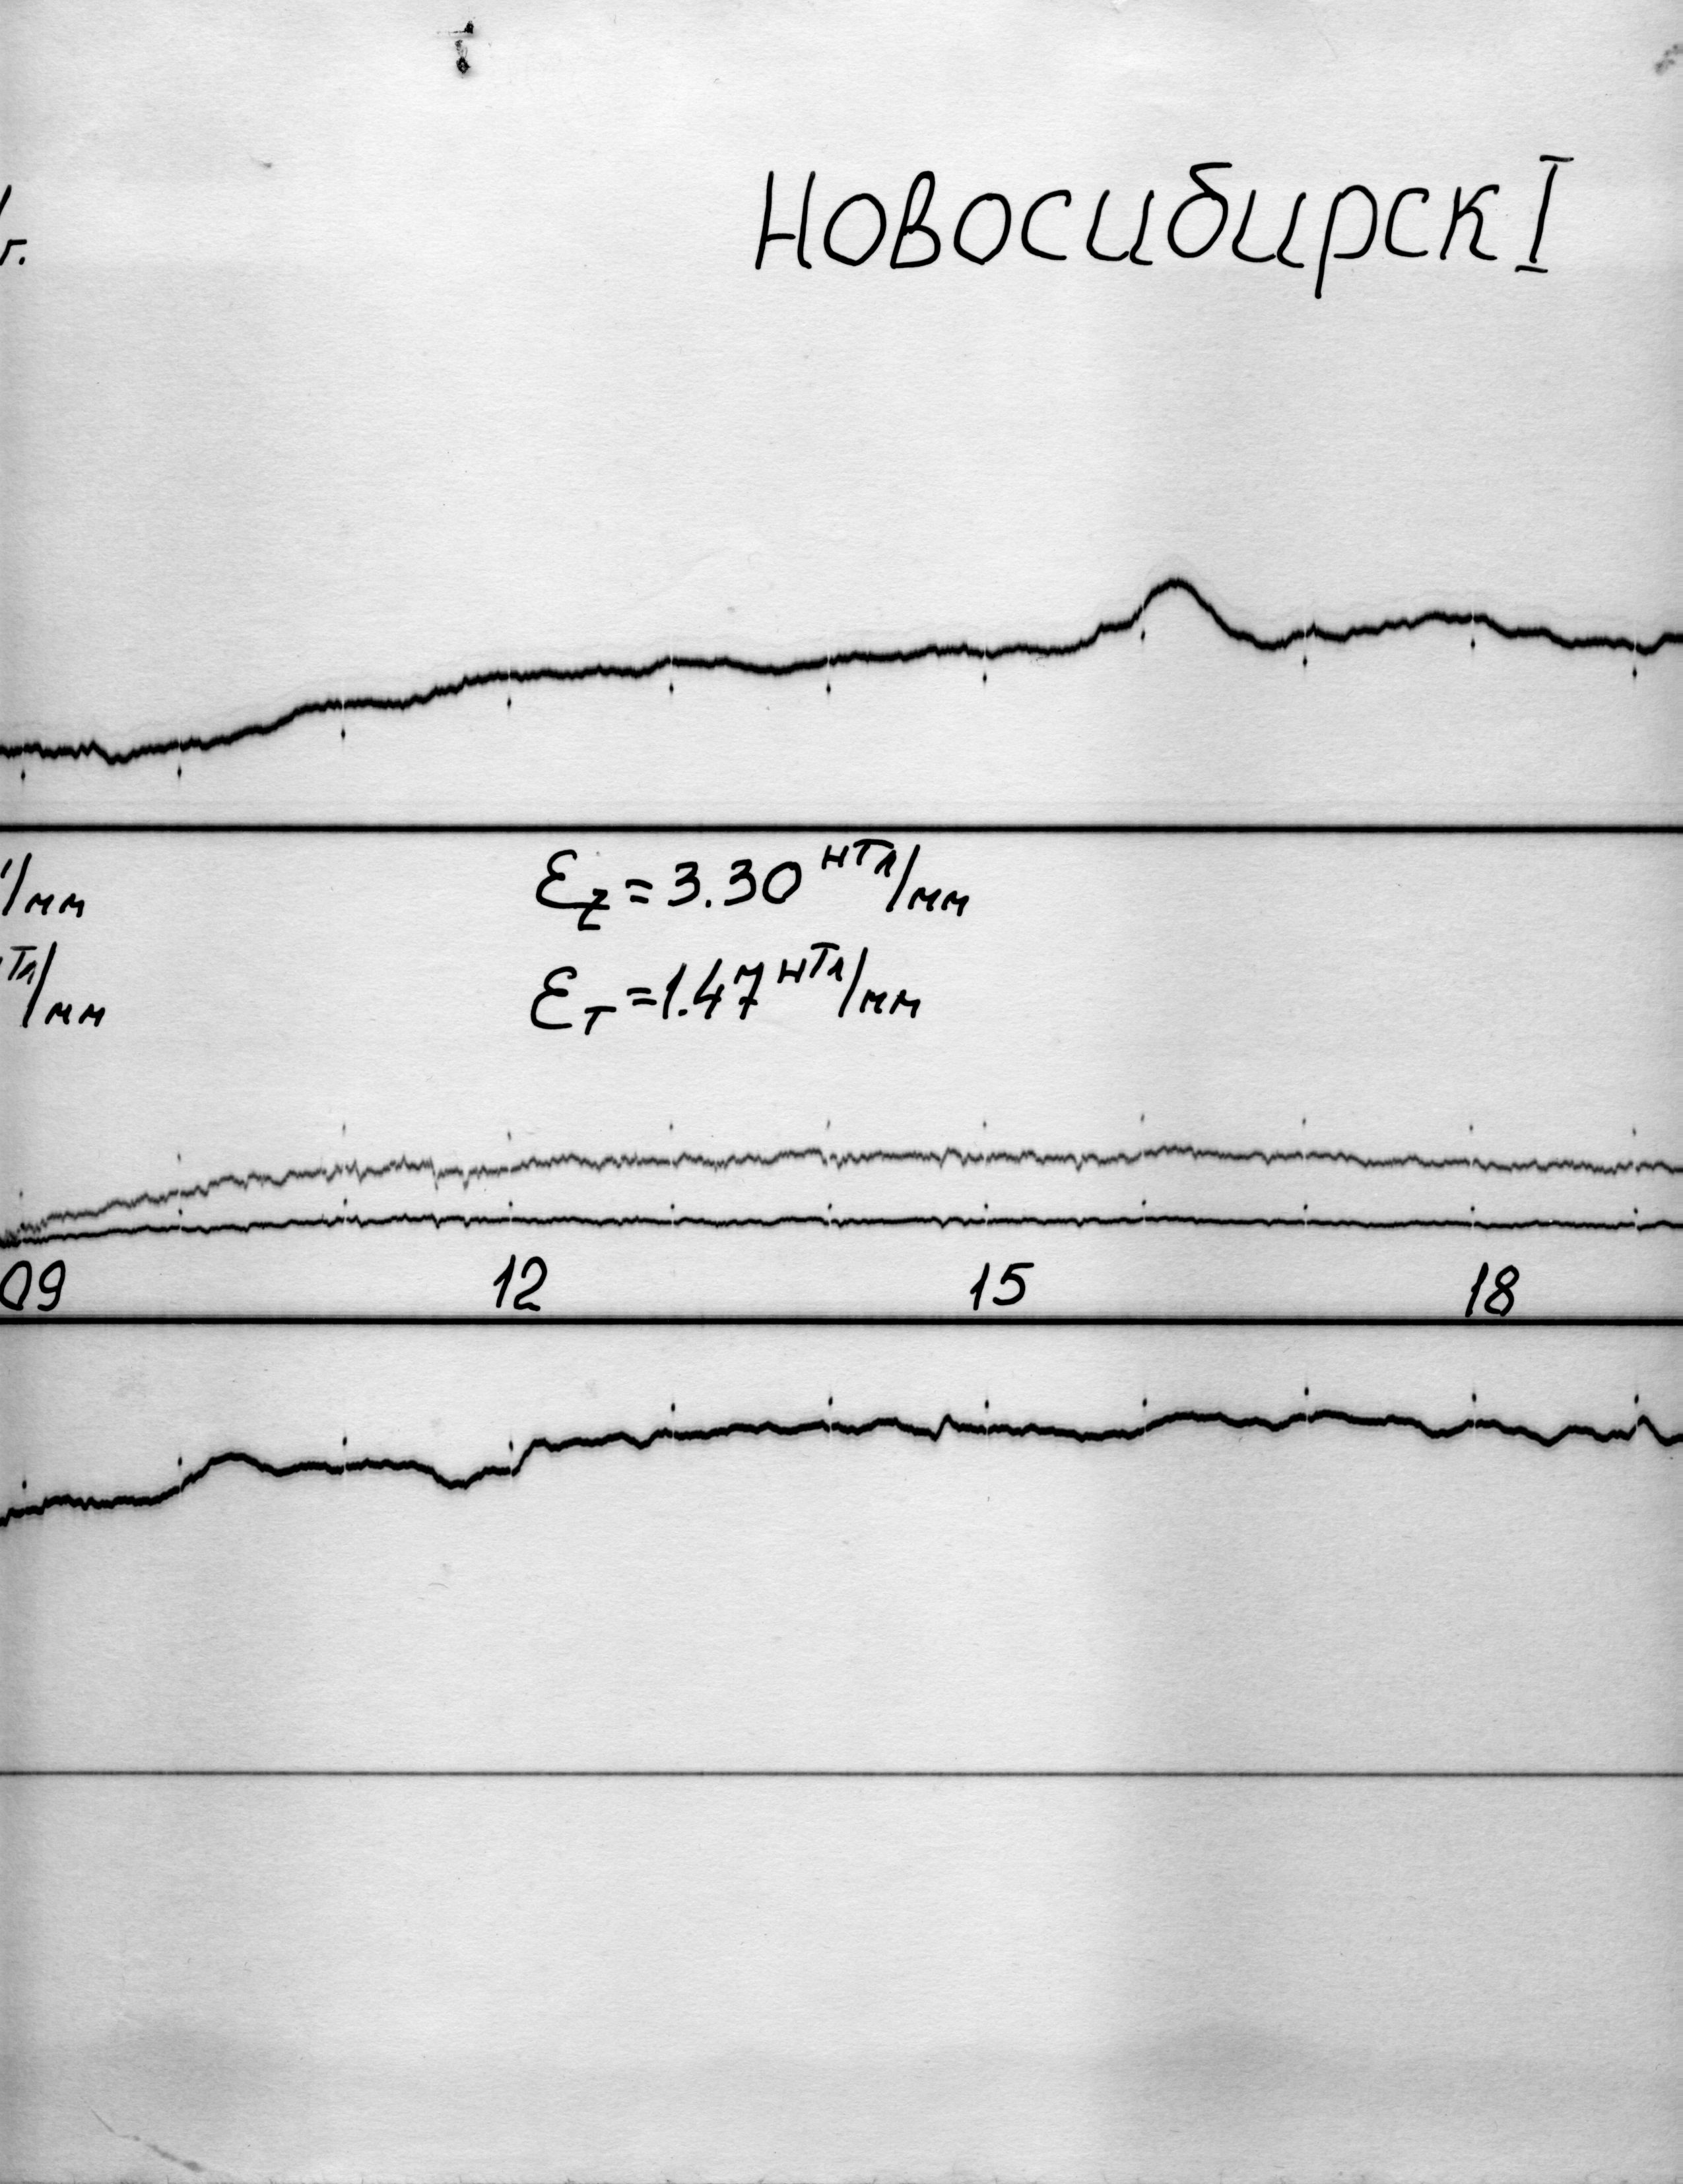 г.
Новосибирск I
/мм
Ez = 3.30 нТл/мм
Тл/мм
Eт = 1.47 нТл/мм
09 12 15 18